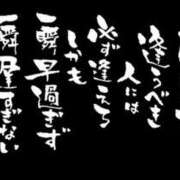 逢うべき
人には
必ず逢える
しかも
一瞬早過ぎず
一瞬遅すぎない